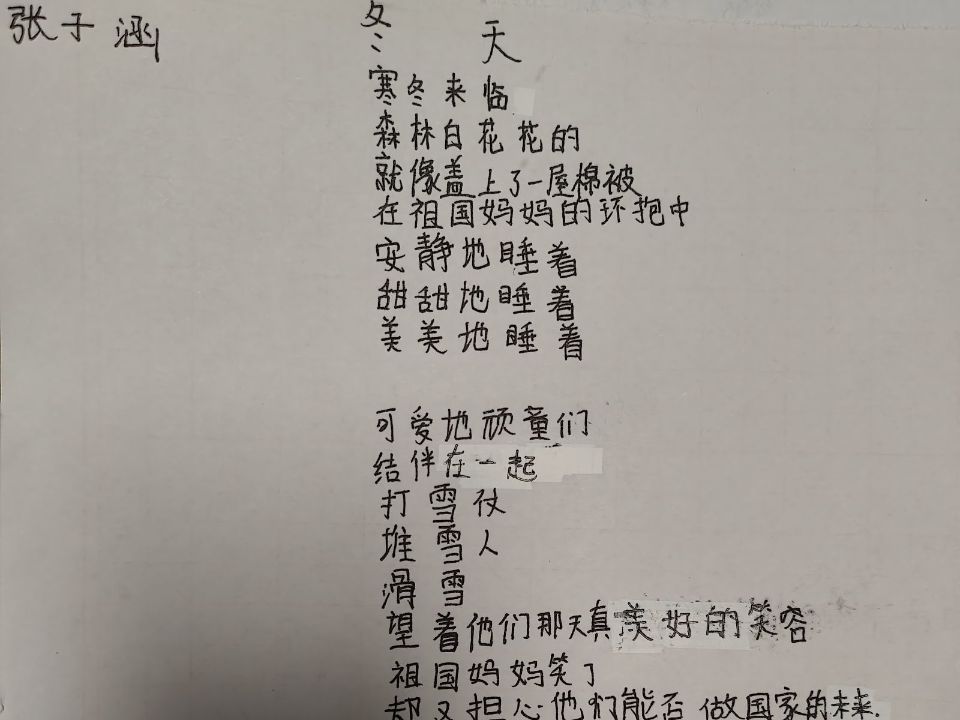 张子涵
冬天
寒冬来临
森林白花花的
就像盖上了一屋棉被
在祖国妈妈的环抱中
安静地睡着
甜甜地睡着
美美地睡着
可爱地顽童们
结伴在一起
打雪仗
堆雪人
滑雪
望着他们那天真美好的笑容
祖国妈妈笑了
却又担心他们能否做国家的未来.